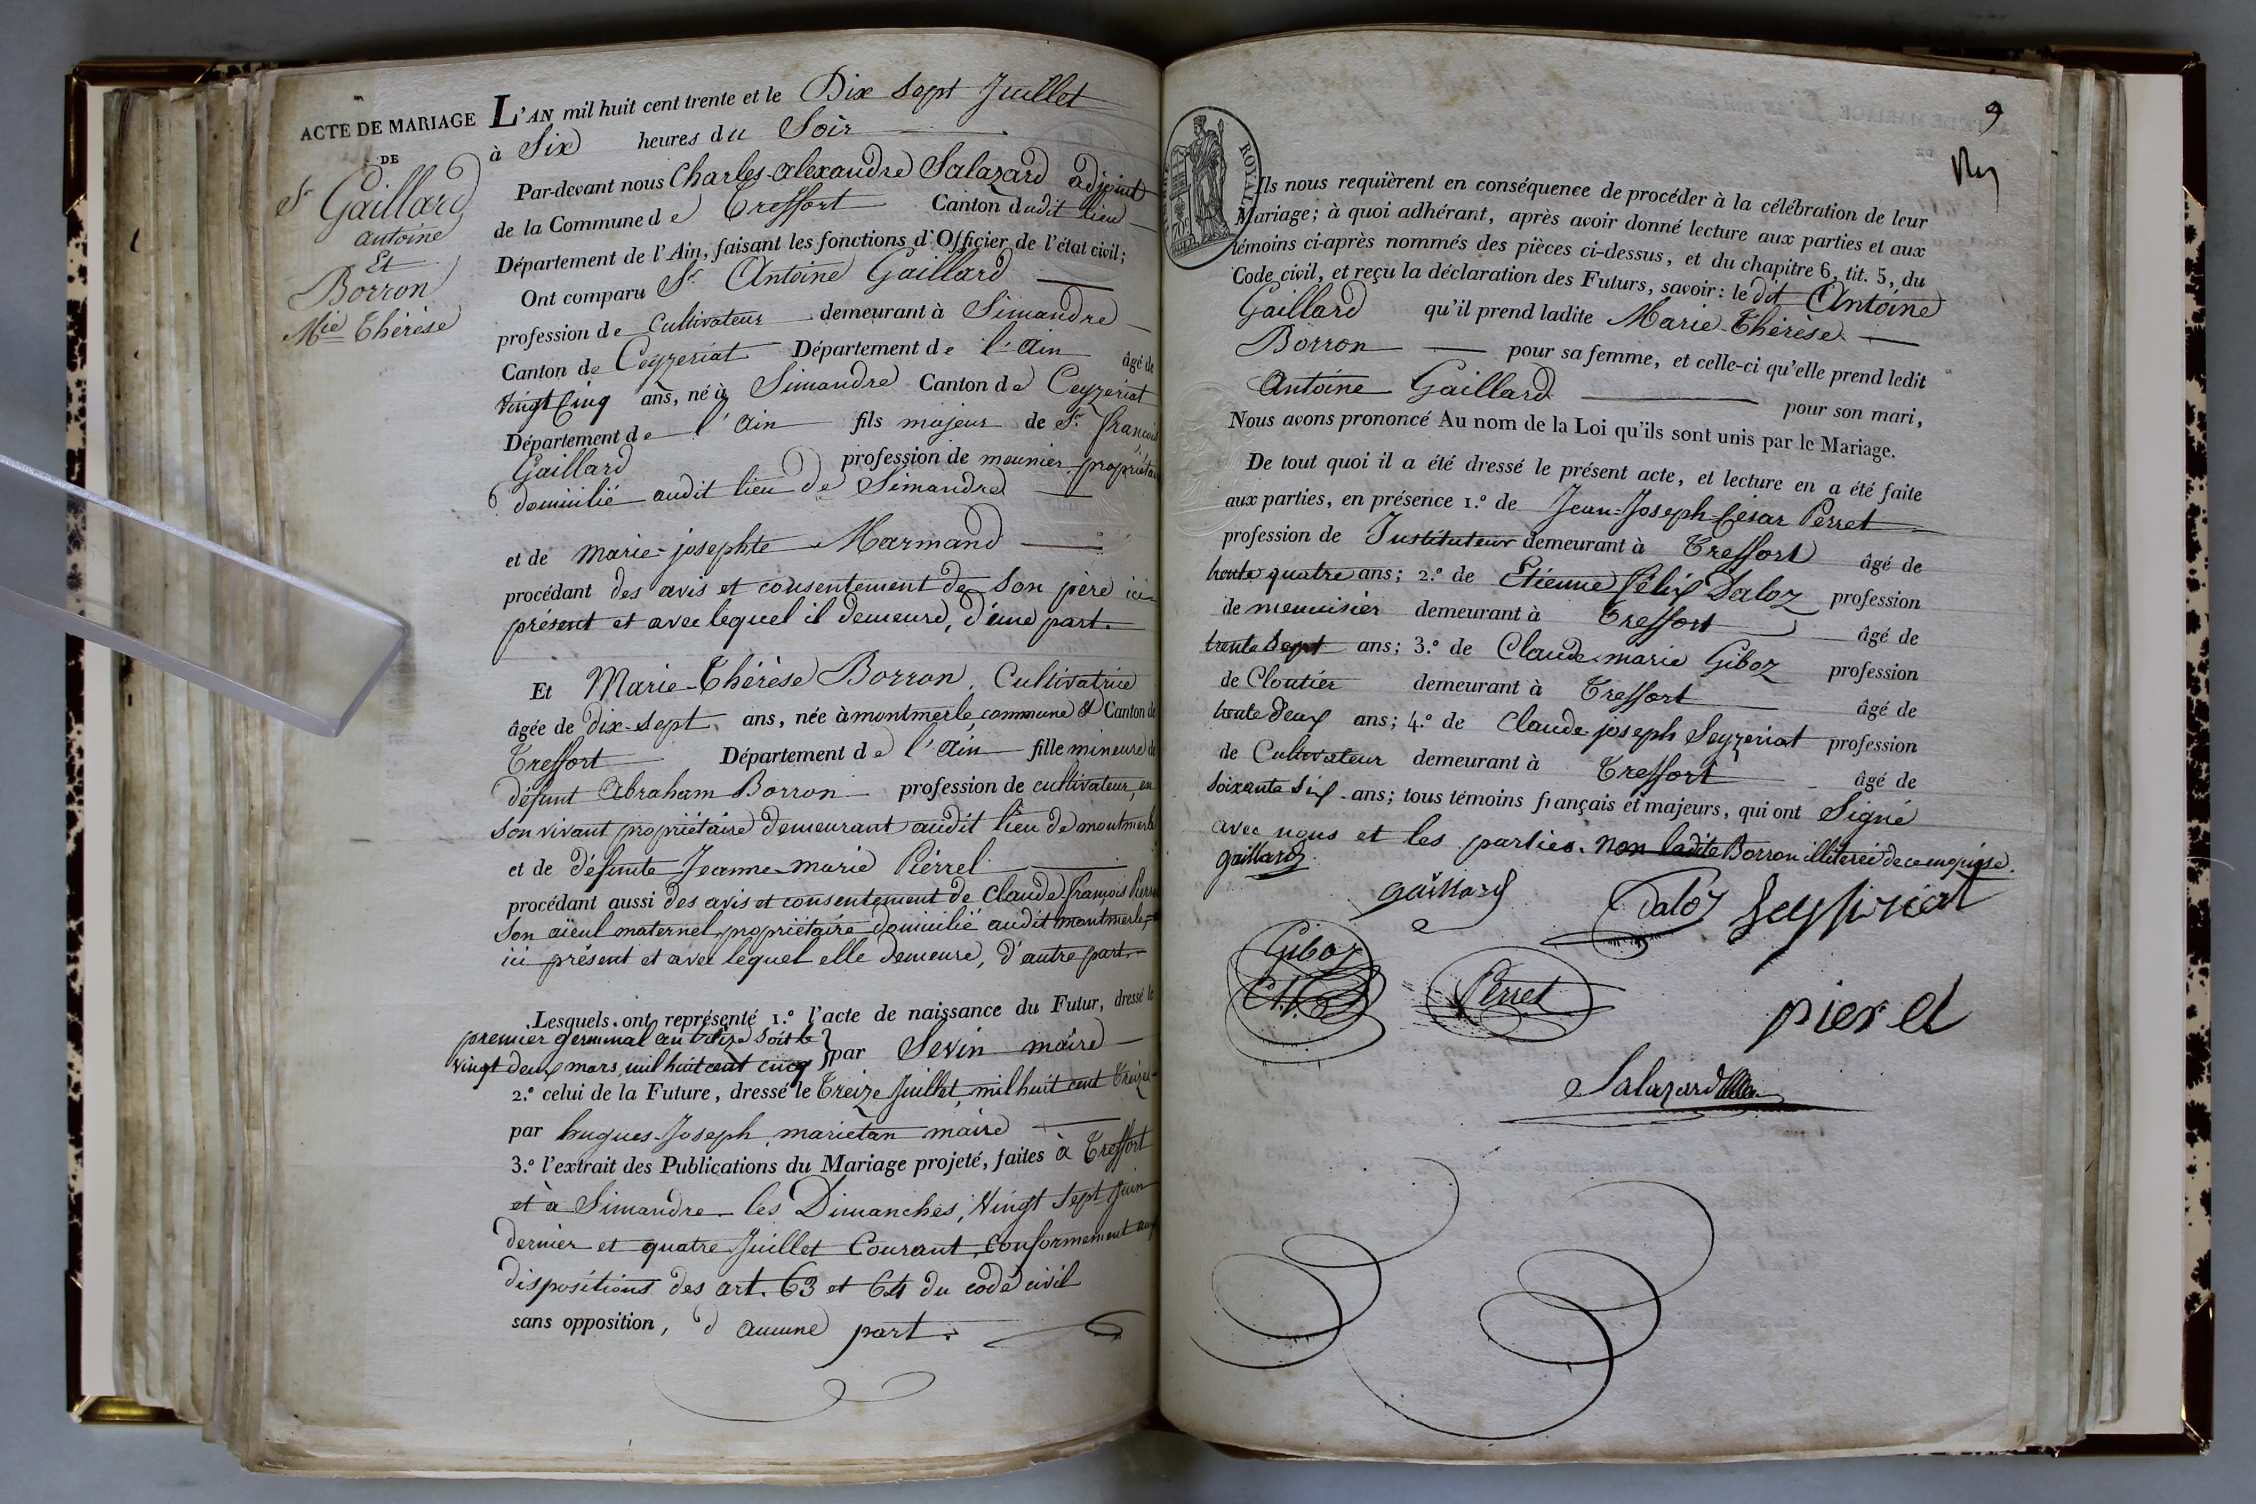 ACTE DE MARIAGE
DE
Sr Gaillard
antoine
Et
Borron
Mie Thérèse
L'AN mil huit cent trente et le Dix Sept Juillet
à Six heures du Soir
Par-devant nous Charles-alexandre Salazard adjoint
de la Commune de Treffort Canton dudit lieu
Département de l'Ain, faisant les fonctions d'Officier de l'état civil;
Ont comparu Sr Antoine Gaillard
profession de Cultivateur demeurant à Simandre
Canton de Ceyzeriat Département de l'ain âgé de
vingt Cinq ans, né à Simandre Canton de Ceyzeriat
Département de l'ain fils majeur de Sr françois
Gaillard profession de meunier propriétaire
domicilié audit lieu de Simandre
et de marie-josephte Marmand
procédant des avis et consentement de Son père ici
présent et avec lequel il demeure, d'une part.
Et Marie-Thérèse Borron, Cultivatrice
âgée de dix-sept ans, née à montmerle, commune et Canton de
Treffort Département de l'ain fille mineure de
défunt abraham Borron profession de cultivateur, en
son vivant propriétaire demeurant audit lieu de montmerle
et de défunte Jeanne-marie Piérrel
procédant aussi des avis et consentement de Claude françois
Son aïeul maternel, propriétaire domicilié audit montmerle,
ici présent et avec lequel elle demeure, d'autre part.
Lesquels ont représenté 1.º l'acte de naissance du Futur, dressé le
premier germinal an treize Soit le
vingt deux mars, mil huit cent cinq par Sevin maire
2.º celui de la Future, dressé le Treize Juillet, mil huit cent Treize
par hugues-Joseph marietan maire
3.º l'extrait des Publications du Mariage projeté, faites à Treffort
et à Simandre les Dimanches, Vingt Sept Juin
dernier et quatre Juillet Courant, conformement aux
dispositions des art. 63 et 64 du code civil
sans opposition, d'aucune part.
9
ROYAL
Ils nous requièrent en conséquence de procéder à la célébration de leur
Mariage; à quoi adhérant, après avoir donné lecture aux parties et aux
témoins ci-après nommés des pièces ci-dessus, et du chapitre 6, tit. 5, du
Code civil, et reçu la déclaration des Futurs, savoir: le dit Antoine
Gaillard qu'il prend ladite Marie-Thérèse
Borron pour sa femme, et celle-ci qu'elle prend ledit
Antoine Gaillard pour son mari,
Nous avons prononcé Au nom de la Loi qu'ils sont unis par le Mariage.
De tout quoi il a été dressé le présent acte, et lecture en a été faite
aux parties, en présence 1.º de Jean-Joseph-César Perret
profession de Instituteur demeurant à Treffort âgé de
trente quatre ans; 2.º de Etienne Félix Daloz profession
de menuisier demeurant à Treffort âgé de
trente Sept ans; 3.º de Claude marie Giboz profession
de Cloutier demeurant à Treffort âgé de
trente deux ans; 4.º de Claude joseph Seyzeriat profession
de Cultivateur demeurant à Treffort âgé de
soixante Six ans; tous témoins français et majeurs, qui ont Signé
avec nous et les parties. non ladite Borron illiterée de ce enquise.
gaillard
gaillard
Daloz
Seyseriat
Giboz
Perret
pierel
Salazard